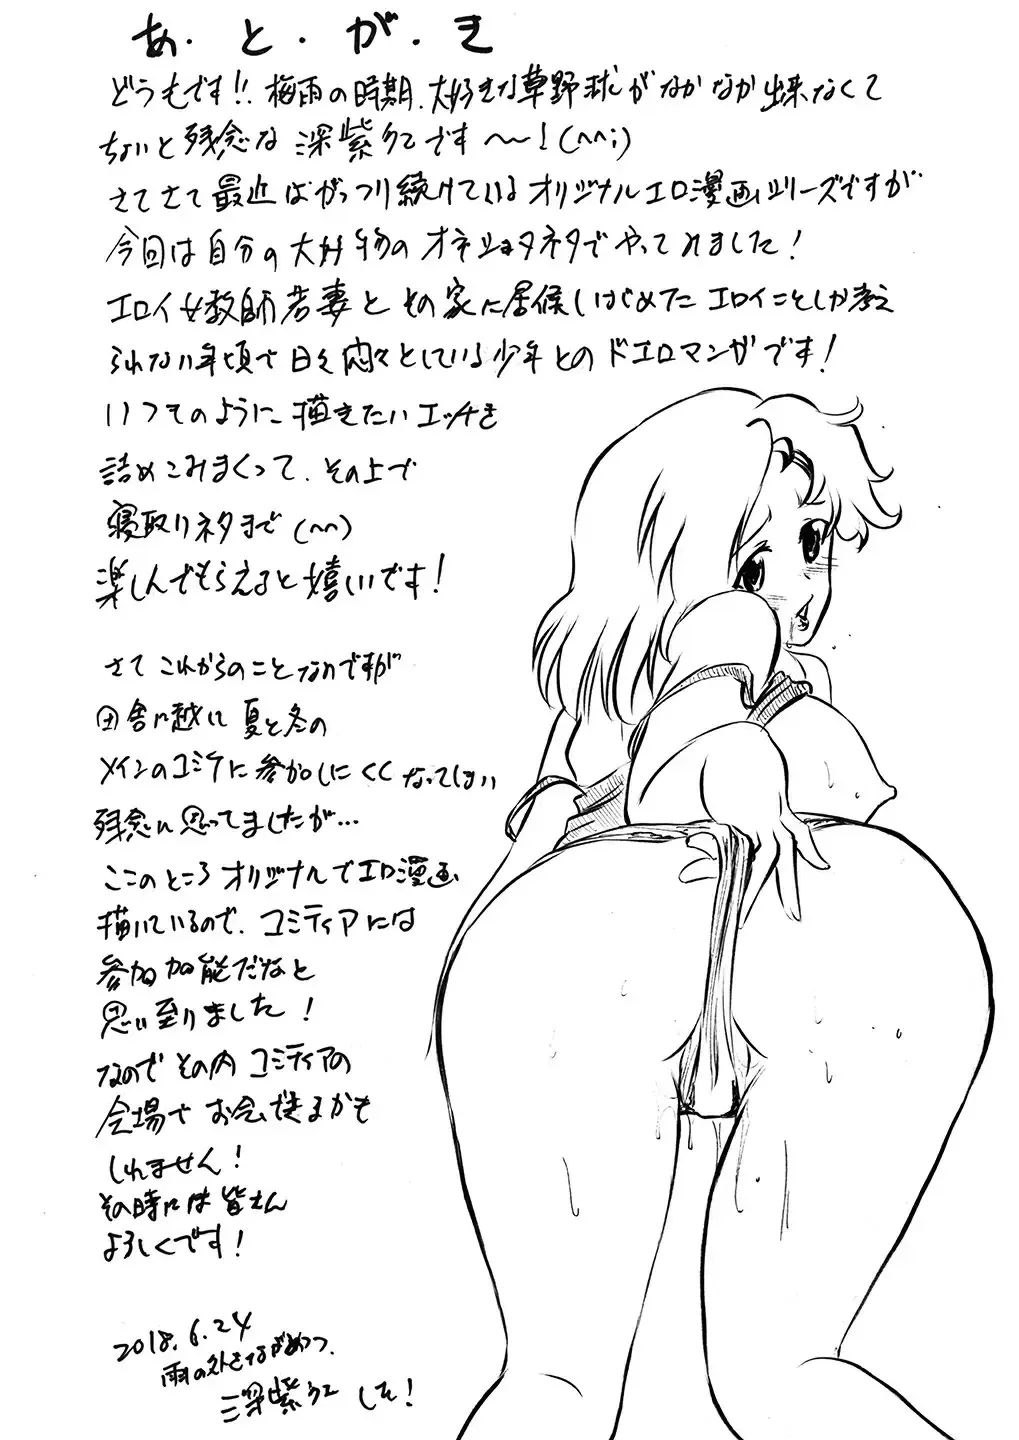 あ・と・が・き
どうもです!!梅雨の時期、大好きな草野球がなかなか出来なくて
ちょいと残念な深紫992です〜〜!(^^;)
さてさて最近はがっつり続けているオリジナルエロ漫画シリーズですが
今回は自分の大好物のオネショタネタでやってみました!
エロイ女教師若妻とその家に居候しはじめたエロイことしか考え
られない年頃で日々悶々としている少年とのドエロマンガです!
いつものように描きたいエッチを
詰めこみまくって、その上で
寝取りネタまで(^^)
楽しんでもらえると嬉しいです!
さてこれからのことなのですが
田舎に越して夏と冬の
メインのコミケに参加しにくくなってしまい
残念に思ってましたが…
ここのところオリジナルでエロ漫画
描いているので、コミティアには
参加可能だなと
思い到りました!
なのでその内コミティアの
会場でお会いできるかも
しれません!
その時には皆さん
よろしくです!
2018.6.24
雨の外をながめつつ、